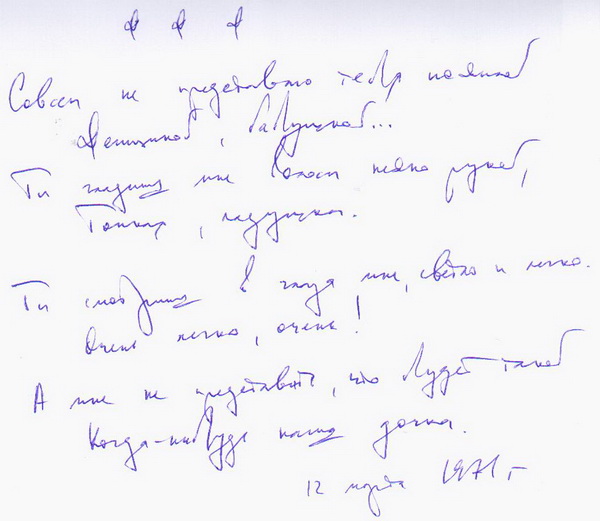 * * *
Совсем не представлю тебя пожилой
Женщиной, бабушкой...
Ты гладишь мне волосы нежно рукой,
Тонкой, ладушкой.
Ты смотришь в глаза мне, светло и легко.
Очень легко, очень!
А мне не представить, что будет такой
Когда-нибудь наша дочка.
12 марта 1971 г